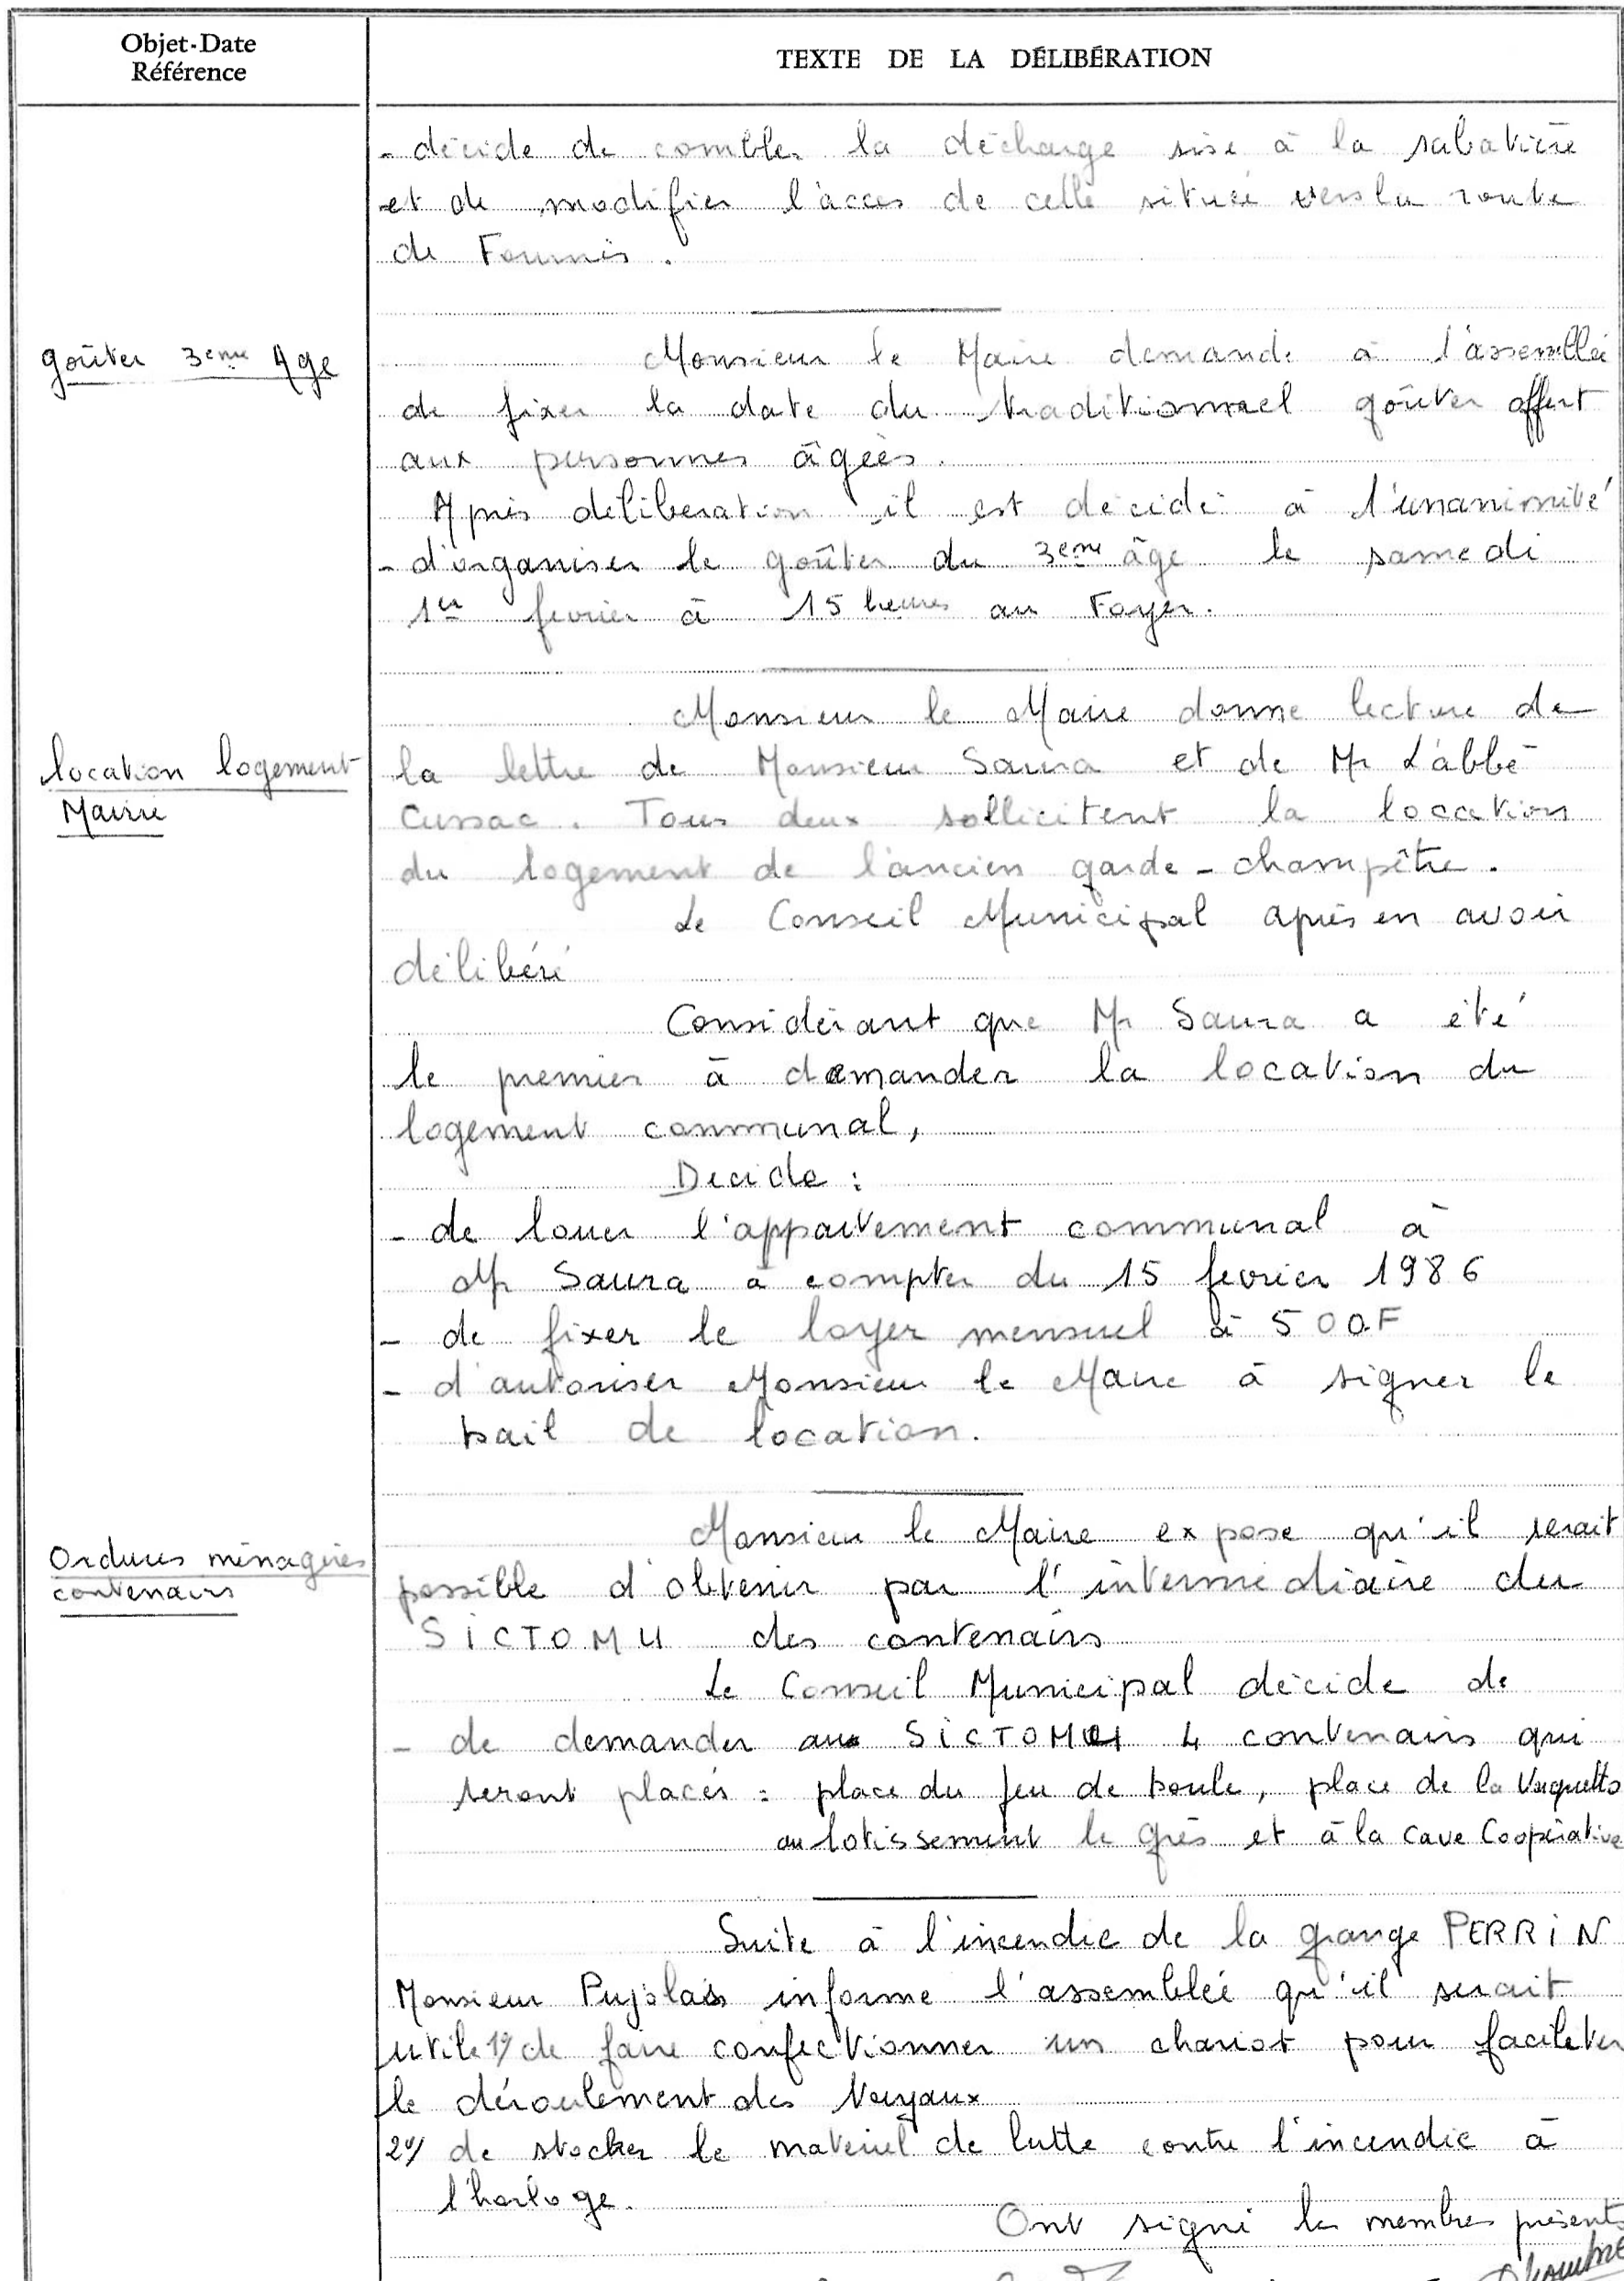 Objet-Date
Référence
TEXTE DE LA DÉLIBÉRATION
- décide de combler la décharge sise à la sabatière
et de modifier l'accès de celle située vers la route
de Fournès.
goûter 3eme Age
Monsieur le Maire demande à l'assemblée
de fixer la date du traditionnel goûter offert
aux personnes âgées.
Après délibération il est décidé à l'unanimité
- d'organiser le goûter du 3eme âge le samedi
1er fevrier à 15 heures au Foyer.
location logement
Mairie
Monsieur le Maire donne lecture de
la lettre de Monsieur Saura et de Mr L'abbé
Cussac. Tous deux sollicitent la location
du logement de l'ancien garde-champêtre.
Le Conseil Municipal après en avoir
délibéré
Considérant que Mr Saura a été
le premier à demander la location du
logement communal,
Decide :
- de louer l'appartement communal à
Mr Saura à compter du 15 fevrier 1986
- de fixer le loyer mensuel à 500F
- d'autoriser Monsieur le Maire à signer le
bail de location.
Ordures ménagères
contenairs
Monsieur le Maire expose qu'il serait
possible d'obtenir par l'intermédiaire du
SICTOMU des contenairs
Le Conseil Municipal décide de
- de demander au SICTOMU 4 contenairs qui
seront placés : place du jeu de boule, place de la
au lotissement le grès et à la Cave Coopérative
Suite à l'incendie de la grange PERRIN
Monsieur Pujolas informe l'assemblée qu'il serait
utile 1°/ de faire confectionner un chariot pour faciliter
le déroulement des tuyaux
2°/ de stocker le matériel de lutte contre l'incendie à
l'horloge.
Ont signé les membres présents